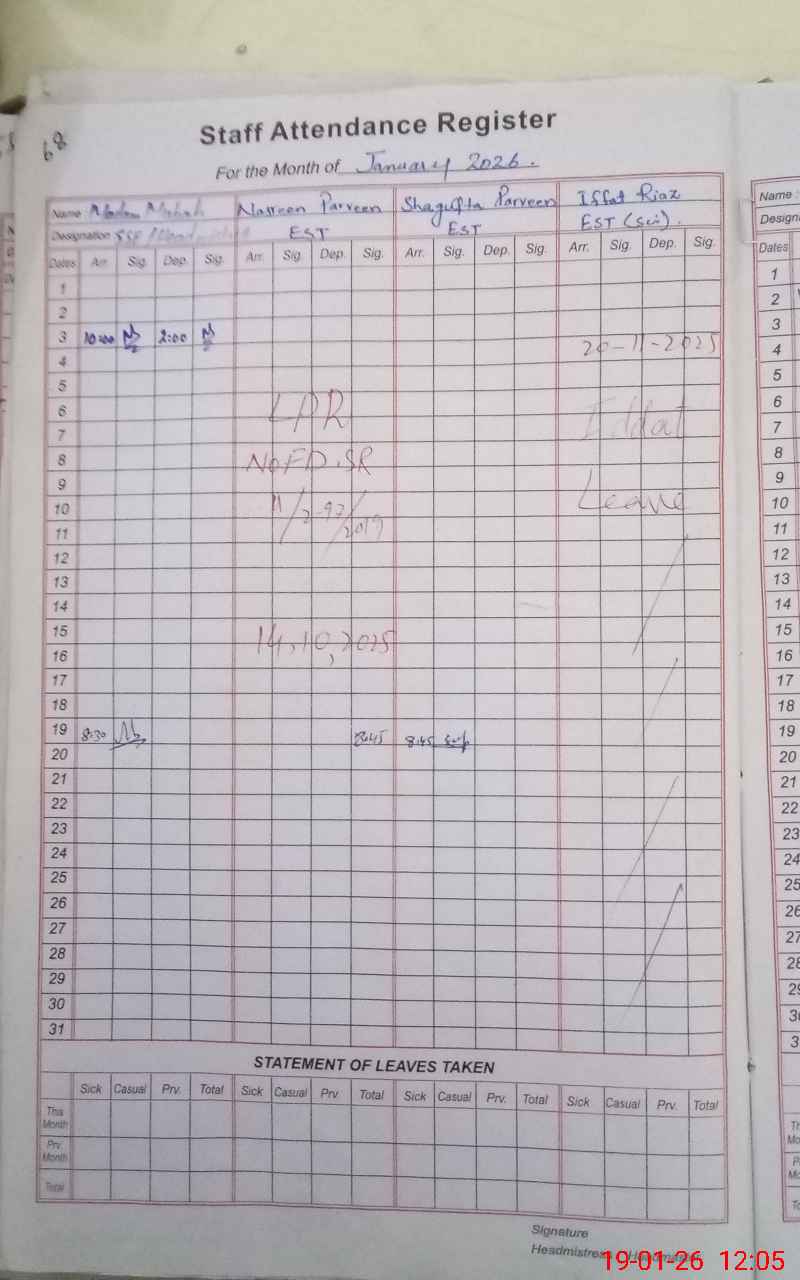 68
Staff Attendance Register
For the Month of January 2026.
Name Nasreen Parveen Shagufta Parveen Iffat Riaz
Designation EST EST EST (Sci).
Dates Arr. Sig. Dep. Sig. Arr. Sig. Dep. Sig. Arr. Sig. Dep. Sig. Arr. Sig. Dep. Sig.
1
2
3 10:00 2:00
4 20-11-2025
5
6 LPR
7 Iddat
8 No FD.SR
9
10 Leave
11 2019
12
13
14
15 14,10,2025
16
17
18
19 8:30 8:45 8:45
20
21
22
23
24
25
26
27
28
29
30
31
STATEMENT OF LEAVES TAKEN
Sick Casual Prv. Total Sick Casual Prv. Total Sick Casual Prv. Total Sick Casual Prv. Total
This Month
Prv. Month
Total
Signature
Headmistress / Headmaster
Name :
Dates
1
2
3
4
5
6
7
8
9
10
11
12
13
14
15
16
17
18
19
20
21
22
23
24
25
19-01-26 12:05